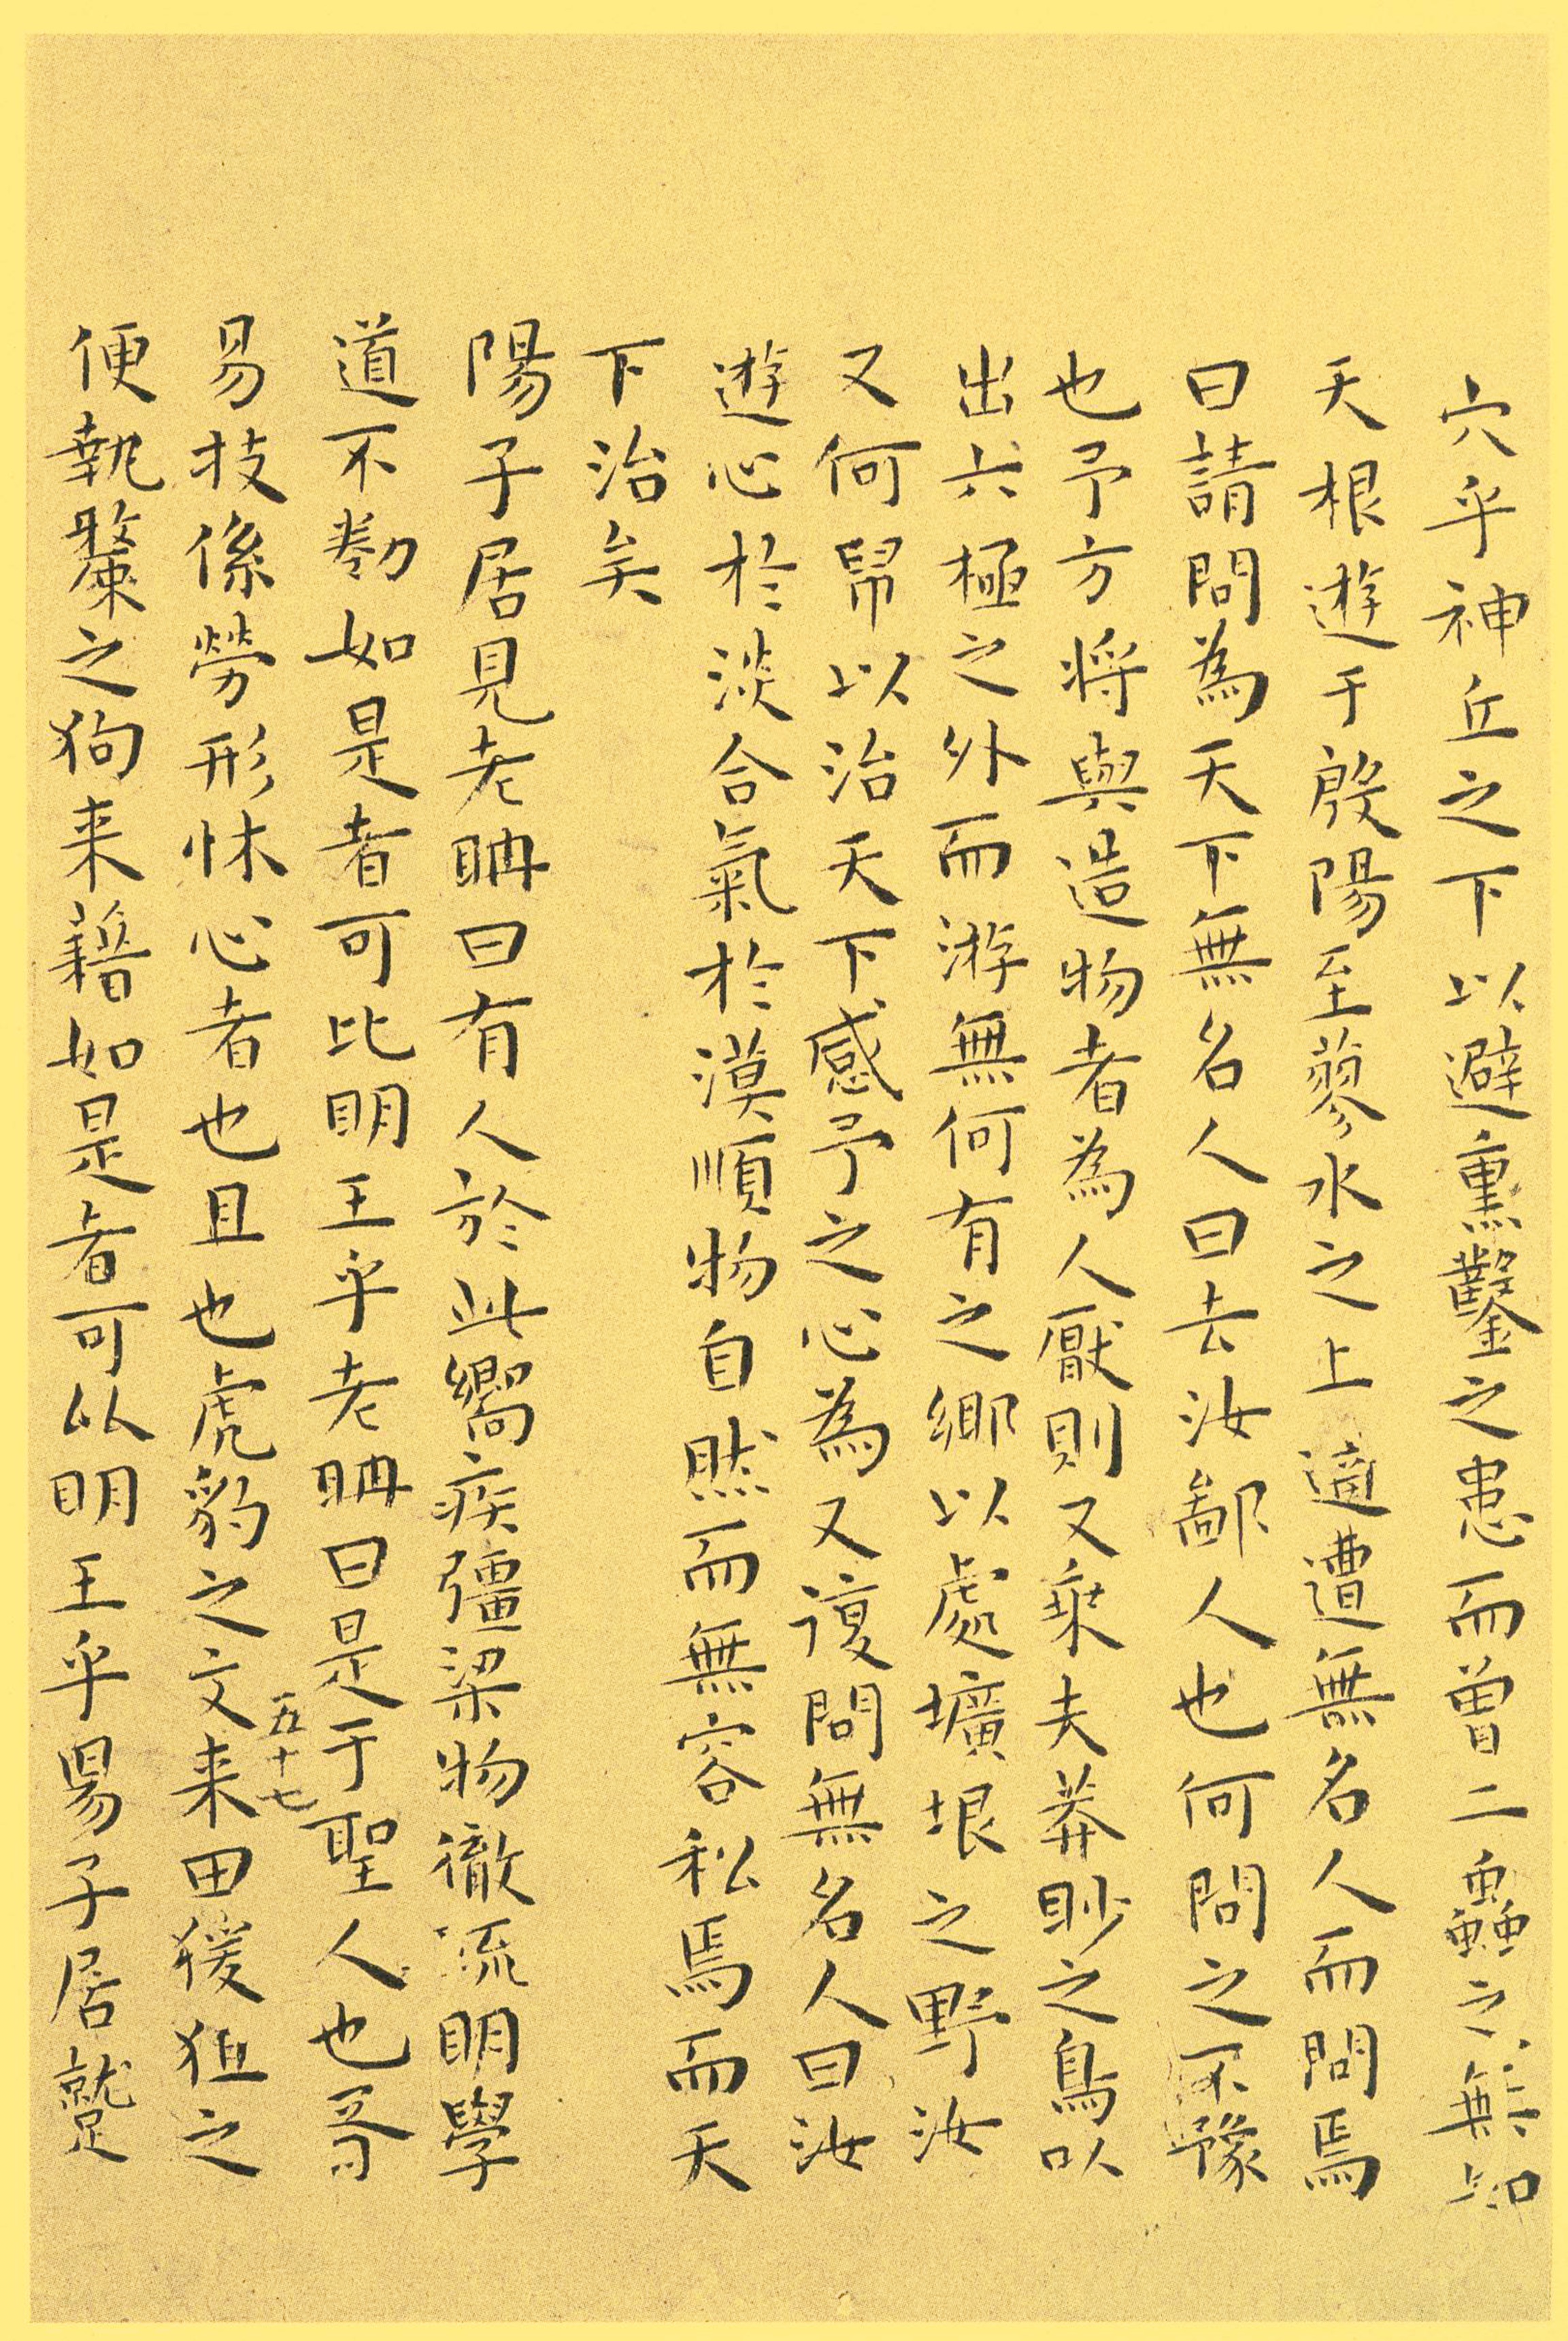 穴乎神丘之下以避熏鑿之患而曾二蟲之無知
天根遊于殷陽至蓼水之上適遭無名人而問焉
曰請問為天下無名人曰去汝鄙人也何問之不豫
也予方将與造物者為人厭則又乗夫莽眇之鳥以
出六極之外而游無何有之鄉以處壙垠之野汝
又何帠以治天下感予之心為又復問無名人曰汝
遊心於淡合氣於漠順物自然而無容私焉而天
下治矣
陽子居見老聃曰有人於此嚮疾彊梁物徹流明學
道不勌如是者可比明王乎老聃曰是于聖人也胥
易技係勞形怵心者也且也虎豹之文来田猨狙之
五十七
便執斄之狗来藉如是者可以明王乎陽子居蹵